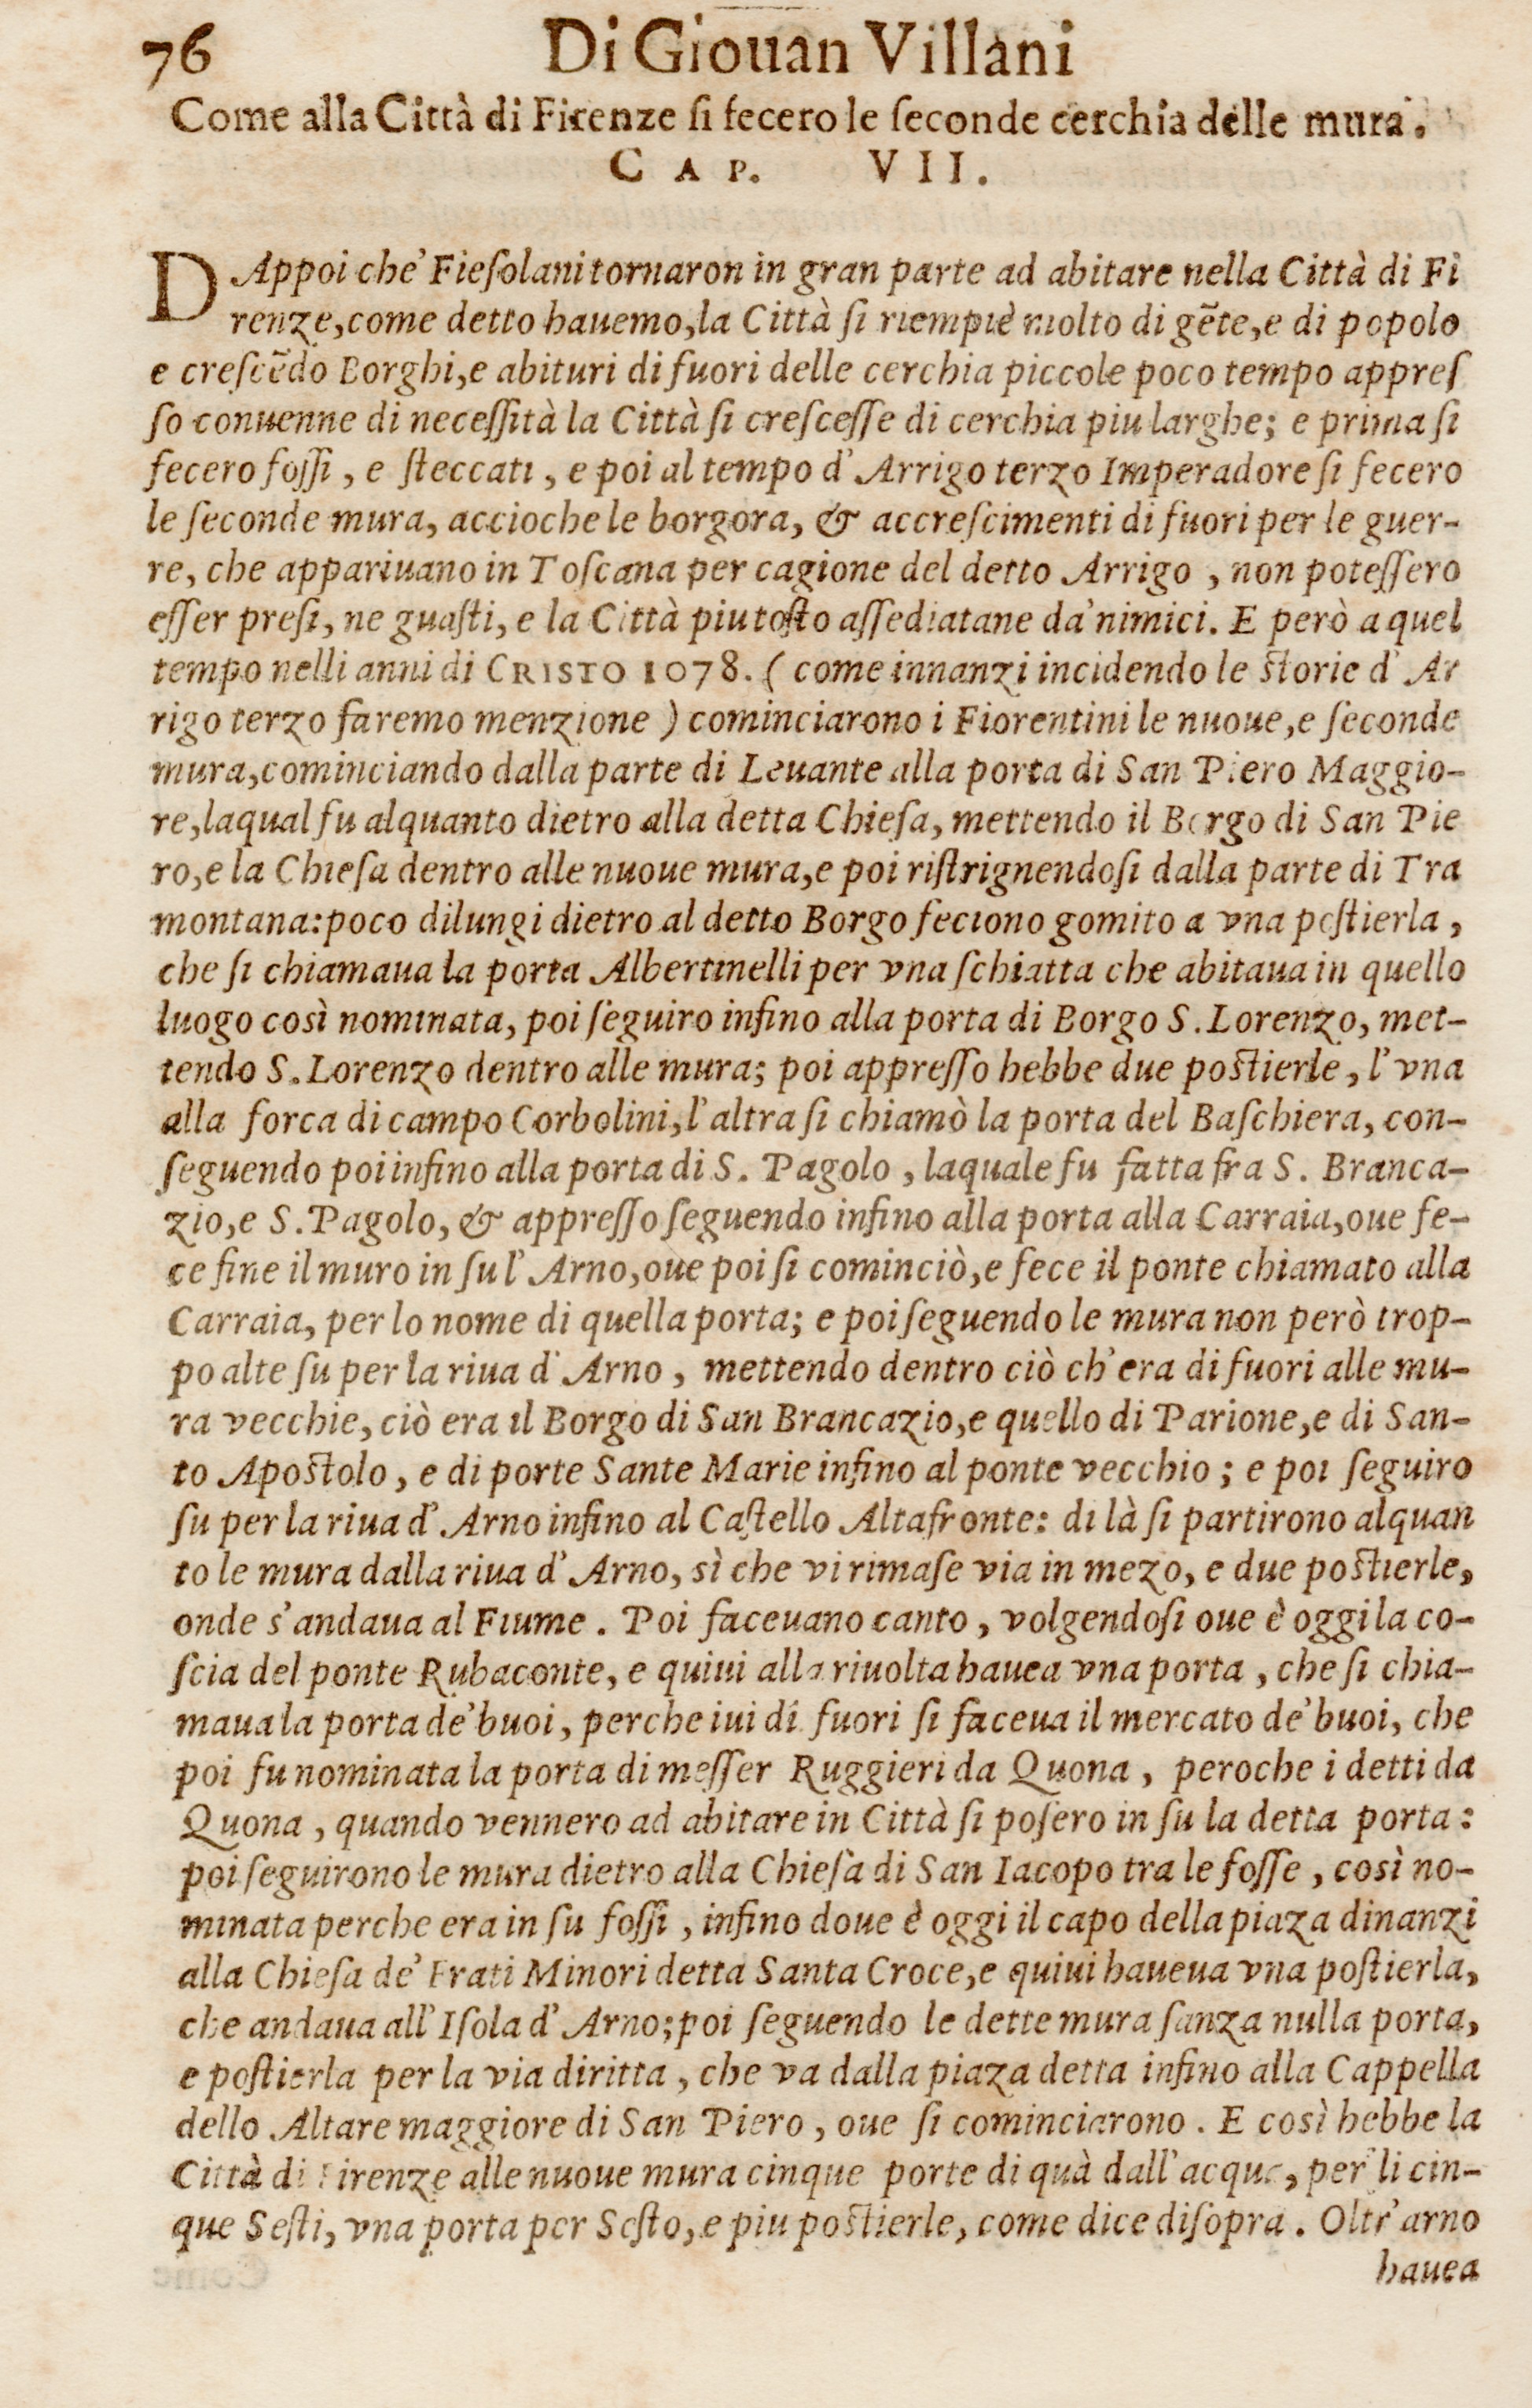 76 Di Giouan Villani
Come alla Città di Firenze ſi fecero le ſeconde cerchia delle mura.
CAP. VII.
DAppoi che' Fieſolani tornaron in gran parte ad abitare nella Città di Fi
renze, come detto hauemo, la Città ſi riempiè molto di gēte, e di popolo
e creſcēdo Borghi, e abituri di fuori delle cerchia piccole poco tempo appreſ
ſo conuenne di neceſſità la Città ſi creſceſſe di cerchia piu larghe; e prima ſi
fecero foſſi, e ſteccati, e poi al tempo d'Arrigo terzo Imperadore ſi fecero
le ſeconde mura, accioche le borgora, & accreſcimenti di fuori per le guer-
re, che appariuano in Toſcana per cagione del detto Arrigo, non poteſſero
eſſer preſi, ne guaſti, e la Città piu toſto aſſediatane da' nimici. E però a quel
tempo nelli anni di CRISTO 1078. (come innanzi incidendo le ſtorie d'Ar
rigo terzo faremo menzione) cominciarono i Fiorentini le nuoue, e ſeconde
mura, cominciando dalla parte di Leuante alla porta di San Piero Maggio-
re, laqual fu alquanto dietro alla detta Chieſa, mettendo il Borgo di San Pie
ro, e la Chieſa dentro alle nuoue mura, e poi riſtrignendoſi dalla parte di Tra
montana: poco dilungi dietro al detto Borgo feciono gomito a vna poſtierla,
che ſi chiamaua la porta Albertinelli per vna ſchiatta che abitaua in quello
luogo così nominata, poi ſeguiro infino alla porta di Borgo S. Lorenzo, met-
tendo S. Lorenzo dentro alle mura; poi appreſſo hebbe due poſtierle, l'vna
alla forca di campo Corbolini, l'altra ſi chiamò la porta del Baſchiera, con-
ſeguendo poi infino alla porta di S. Pagolo, laquale fu fatta fra S. Branca-
zio, e S. Pagolo, & appreſſo ſeguendo infino alla porta alla Carraia, oue fe-
ce fine il muro in ſu l'Arno, oue poi ſi cominciò, e fece il ponte chiamato alla
Carraia, per lo nome di quella porta; e poi ſeguendo le mura non però trop-
po alte ſu per la riua d'Arno, mettendo dentro ciò ch'era di fuori alle mu-
ra vecchie, ciò era il Borgo di San Brancazio, e quello di Parione, e di San-
to Apoſtolo, e di porte Sante Marie infino al ponte vecchio; e poi ſeguiro
ſu per la riua d'Arno infino al Caſtello Altafronte: di là ſi partirono alquan
to le mura dalla riua d'Arno, sì che vi rimaſe via in mezo, e due poſtierle,
onde s'andaua al Fiume. Poi faceuano canto, volgendoſi oue è oggi la co-
ſcia del ponte Rubaconte, e quiui alla riuolta hauea vna porta, che ſi chia-
maua la porta de' buoi, perche iui di fuori ſi faceua il mercato de' buoi, che
poi fu nominata la porta di meſſer Ruggieri da Quona, peroche i detti da
Quona, quando vennero ad abitare in Città ſi poſero in ſu la detta porta:
poi ſeguirono le mura dietro alla Chieſa di San Iacopo tra le foſſe, così no-
minata perche era in ſu foſſi, infino doue è oggi il capo della piaza dinanzi
alla Chieſa de' Frati Minori detta Santa Croce, e quiui haueua vna poſtierla,
che andaua all'Iſola d'Arno; poi ſeguendo le dette mura ſanza nulla porta,
e poſtierla per la via diritta, che va dalla piaza detta infino alla Cappella
dello Altare maggiore di San Piero, oue ſi cominciarono. E così hebbe la
Città di Firenze alle nuoue mura cinque porte di quà dall'acqua, per li cin-
que Seſti, vna porta per Seſto, e piu poſtierle, come dice diſopra. Oltr'arno
hauea